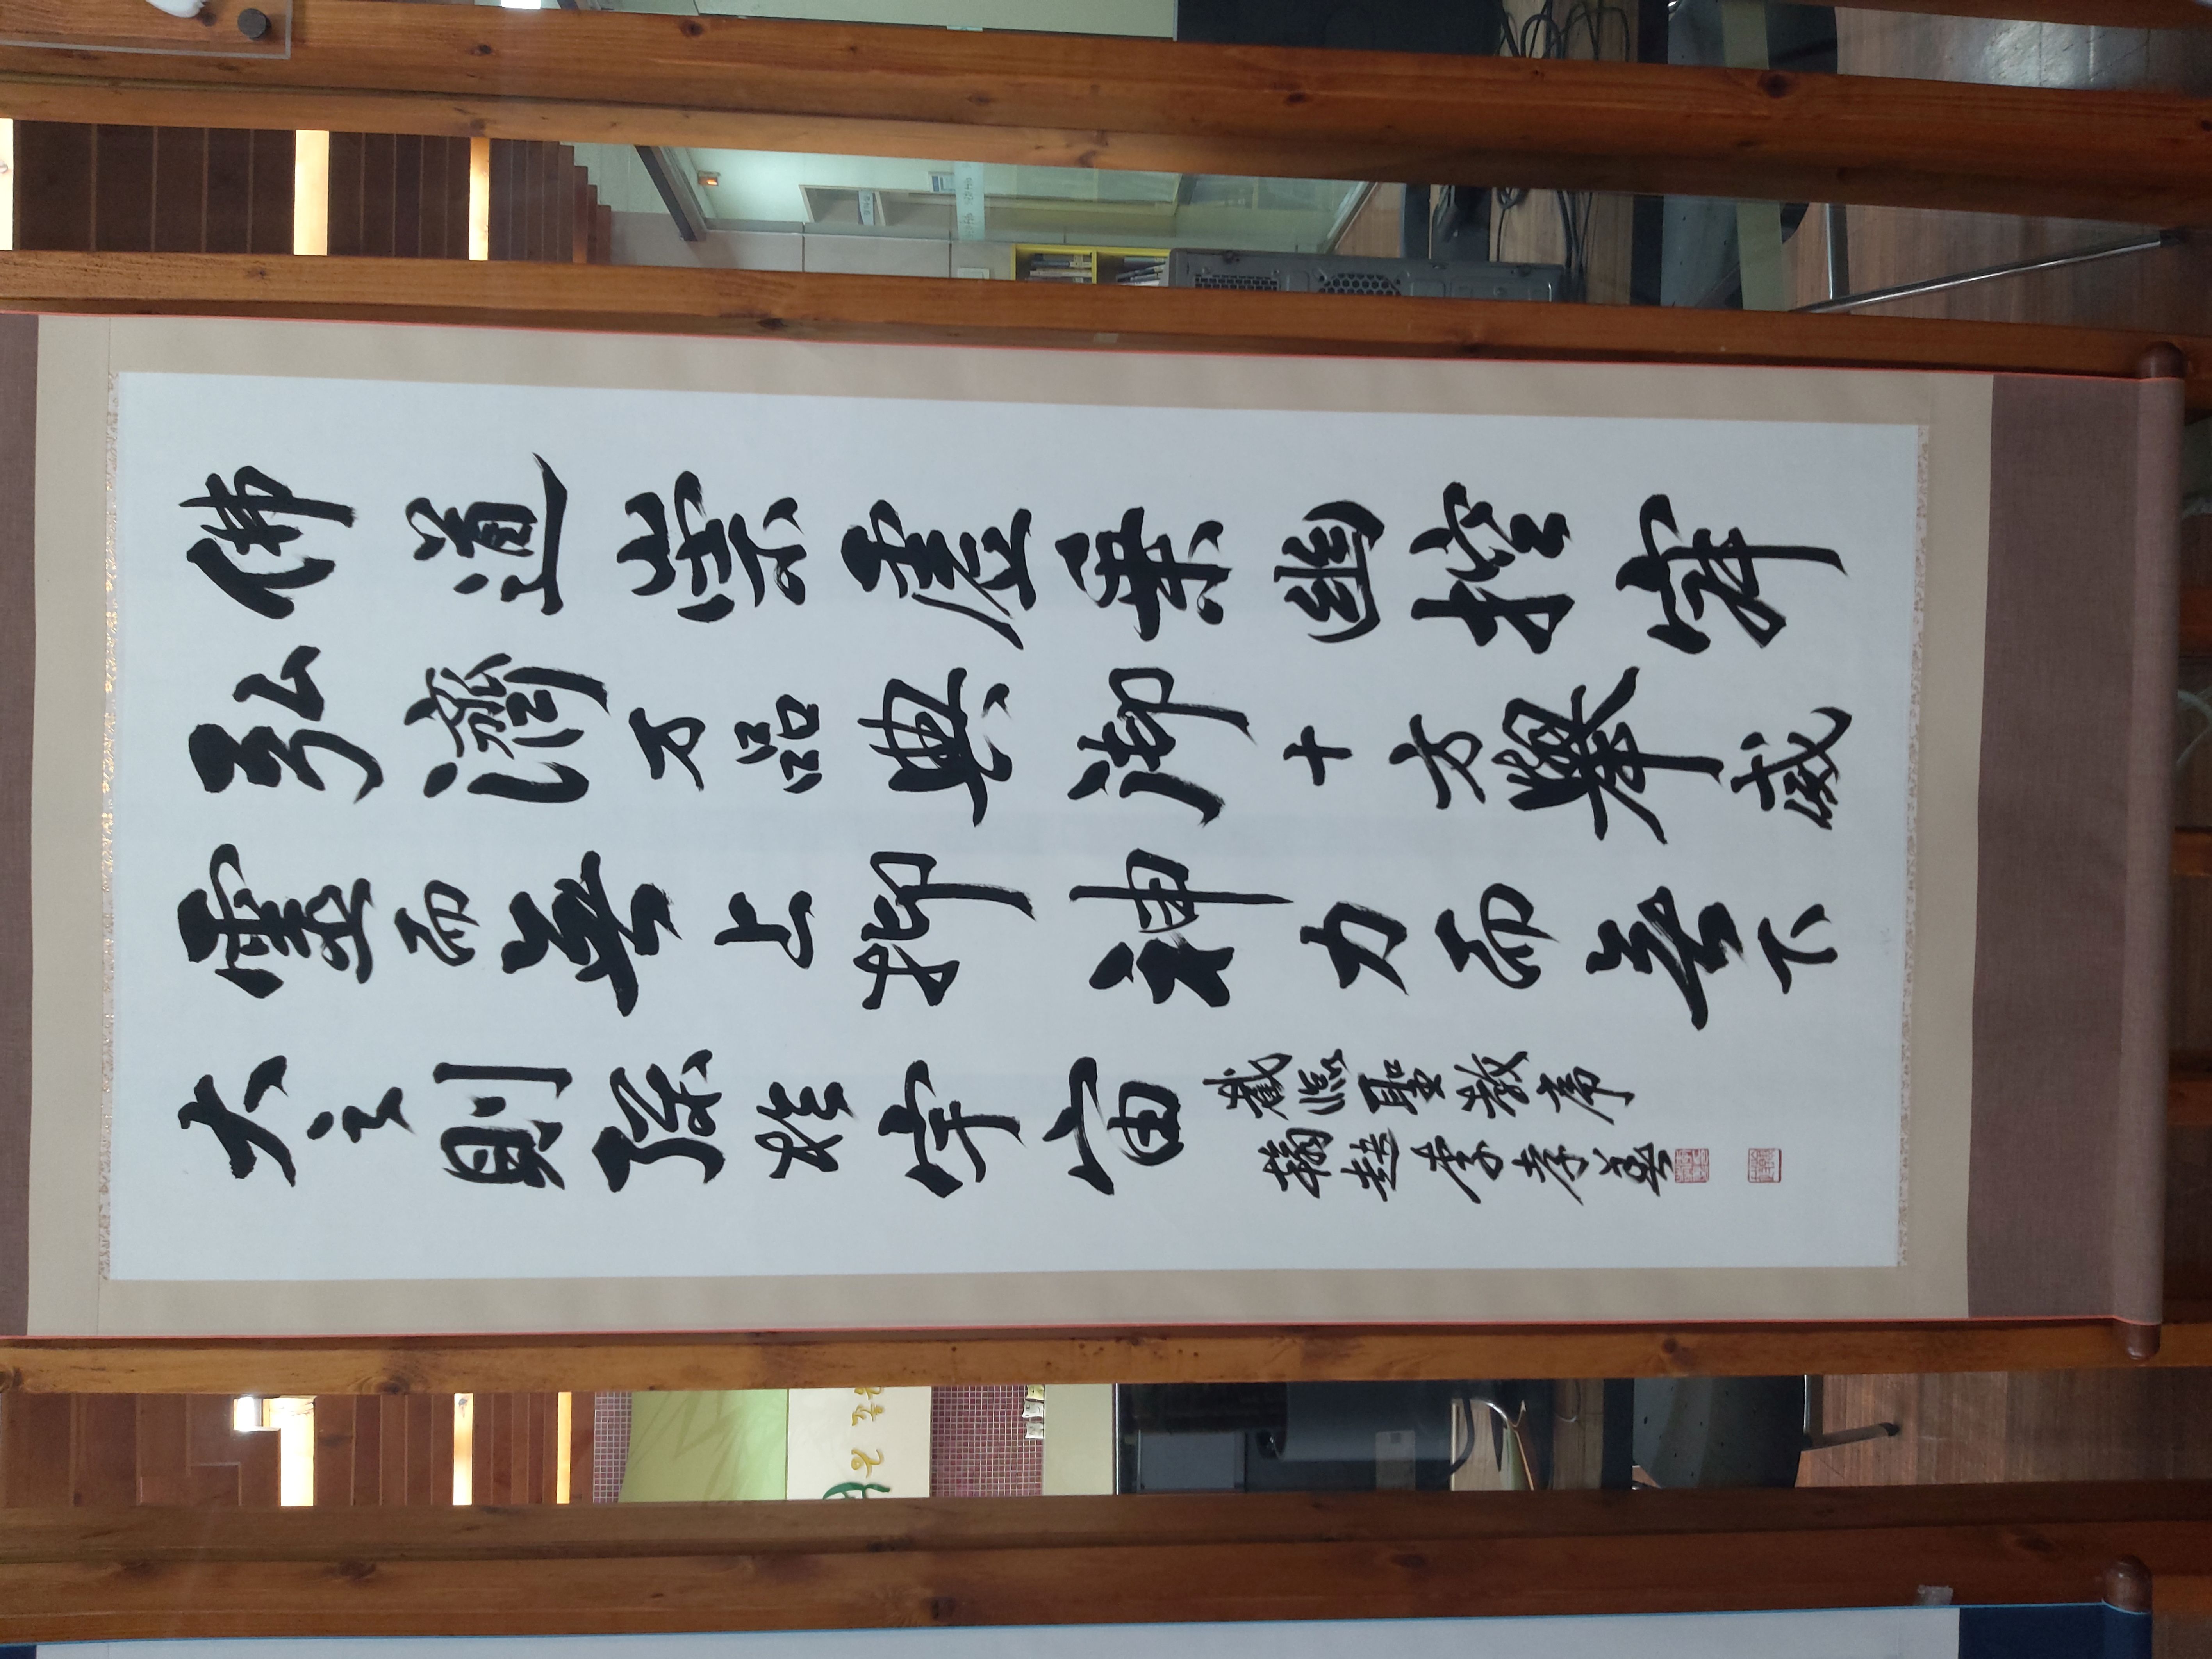 佛道崇虛乘幽控寂
弘濟万品典御十方擧威
靈而無上抑神力而無下
大之則弥於宇宙
臨聖教序
李孝